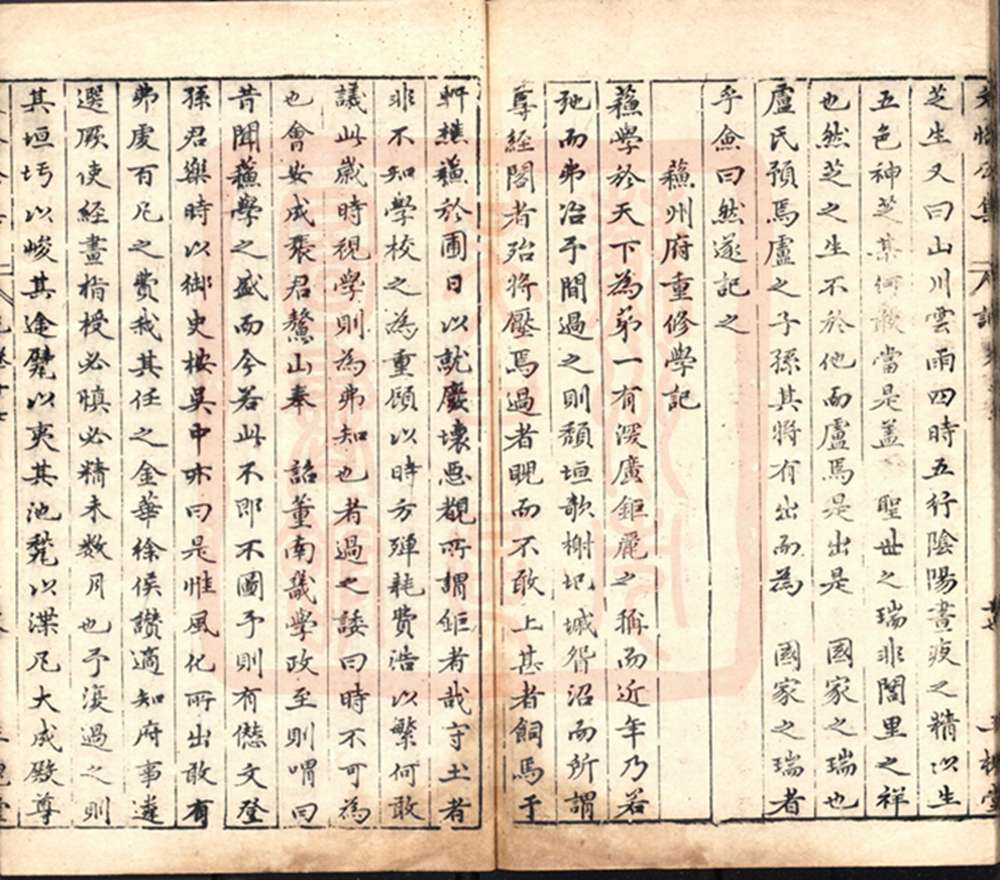 芝生又曰山川雲雨四時五行陰陽晝夜之精以生
五色神芝某何 當是蓋 聖世之瑞非閭里之祥
也然芝之生不於他而盧焉是出是 國家之瑞也
盧氏預焉盧之子孫其將有出而為 國家之瑞者
乎僉曰然遂記之
蘓州府重修學記
蘓學於天下為第一有深廣鉅麗之稱而近年乃若
弛而弗治予間過之則頹垣欹榭圮城眢沼而所謂
尊經閣者殆將壓焉過者睨而不敢上甚者飼馬于
軒樵蘓於圃日以就廢壞惡覩所謂鉅者哉守土者
非不知學校之為重顧以時方殫耗費浩以繁何敢
議此歲時視學則為弗知也者過之諉曰時不可為
也會安成張君鰲山奉 詔董南畿學政至則喟曰
昔聞蘓學之盛而今若此不即不圖予則有僽文登
孫君樂時以御史按吳中亦曰是惟風化所出敢有
弗虔有凡之費我其任之金華徐侯讚適知府事遂
選厥使經畫楷授必慎必精未数月也予復過之則
其垣圬以峻其途甓以夷其池甃以渫凡大成殿尊